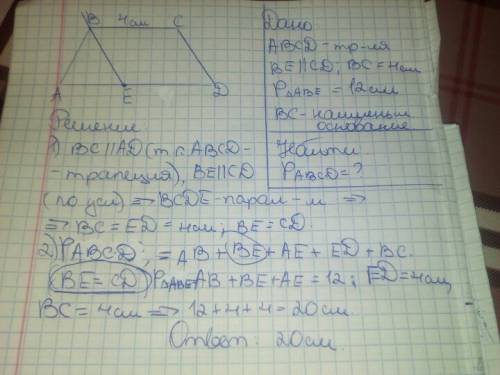 B 4см C
A E D
Дано
ABCD - тр-ия
BE||CD; BC = 4см
P△ABE = 12см
BC - наименьш.
основание
Найти
PABCD = ?
Решение
1) BC||AD (т.к. ABCD -
- трапеция), BE||CD
(по усл) => BCDE - парал-м =>
=> BC = ED = 4см, BE = CD.
2) PABCD; = AB + BE + AE + ED + BC.
BE = CD P△ABE AB + BE + AE = 12; ED = 4см,
BC = 4см => 12 + 4 + 4 = 20см
Ответ: 20см.